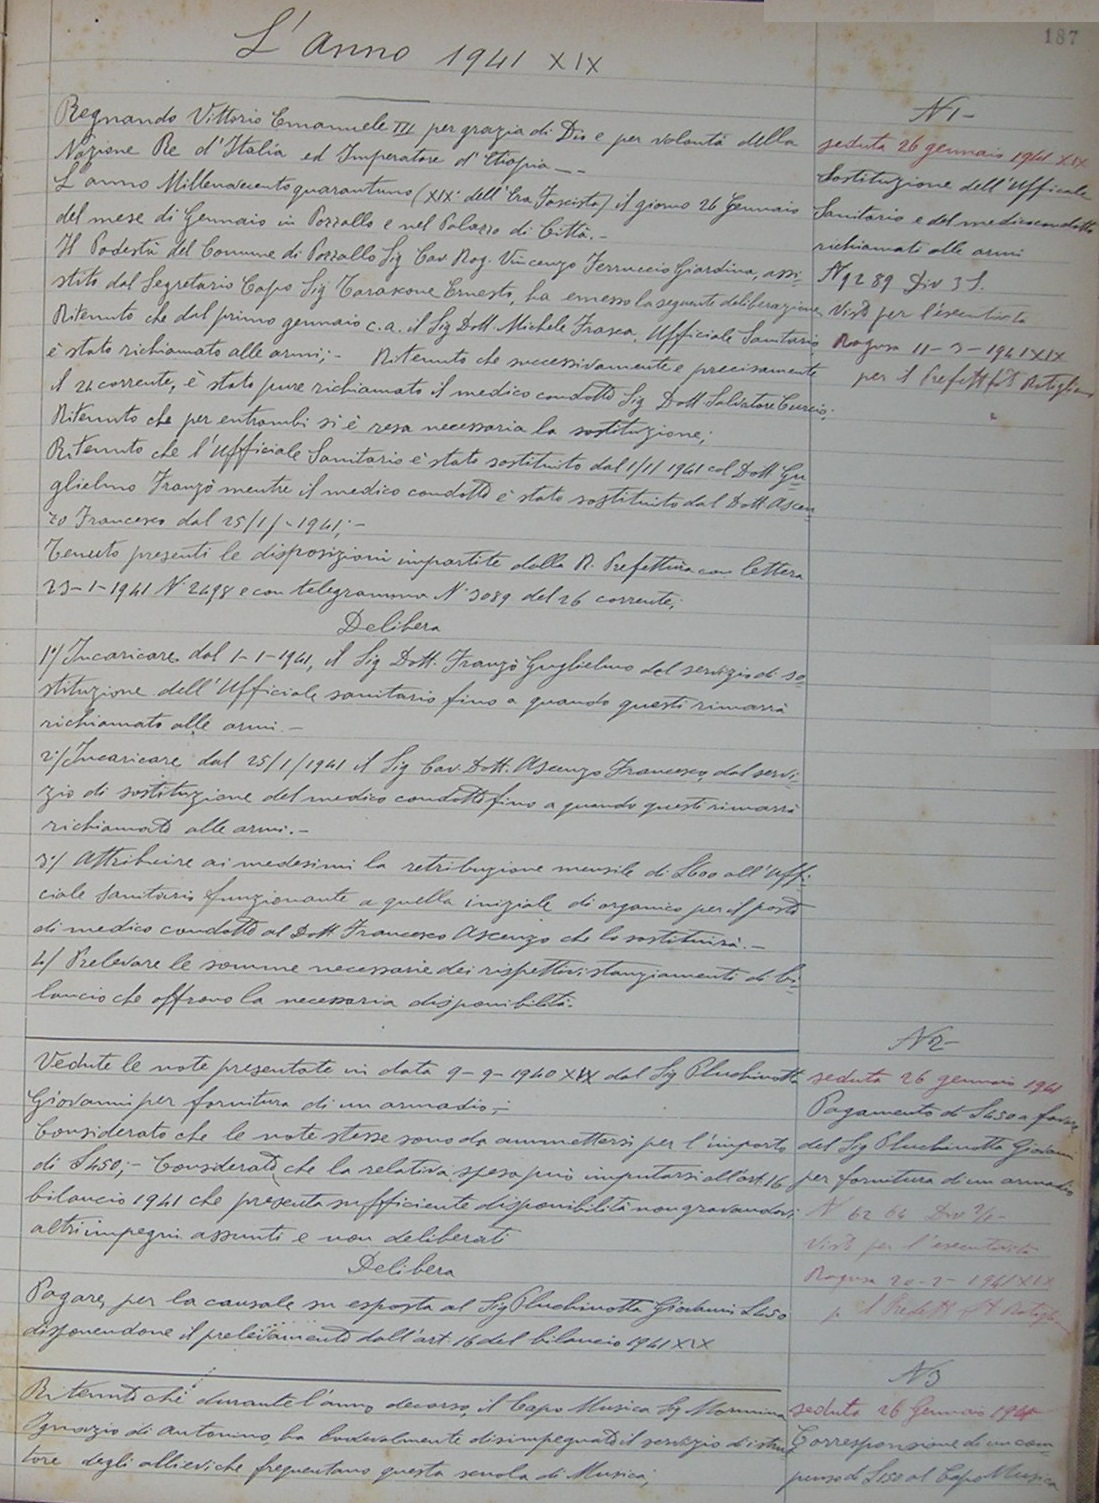 187
L'anno 1941 XIX
Regnando Vittorio Emanuele III per grazia di Dio e per volontà della
Nazione Re d'Italia ed Imperatore d'Etiopia --
L'anno Millenovecentoquarantuno (XIX° dell'Era Fascista) il giorno 26 Gennaio
del mese di Gennaio in Pozzallo e nel Palazzo di Città.-
Il Podestà del Comune di Pozzallo Sig Cav Rag. Vincenzo Ferruccio Giardina, assi-
stito dal Segretario Capo Sig Tarascone Ernesto, ha emesso la seguente deliberazione
Ritenuto che dal primo gennaio c.a. il Sig Dott. Michele Frasca, Ufficiale Sanitario
è stato richiamato alle armi;- Ritenuto che successivamente e precisamente
il 24 corrente, è stato pure richiamato il medico condotto Sig Dott Salvatore Curcio;
Ritenuto che per entrambi si è resa necessaria la sostituzione;
Ritenuto che l'Ufficiale Sanitario è stato sostituito dal 1/1/1941 col Dott Gu-
glielmo Franzò mentre il medico condotto è stato sostituito dal Dott. Ascen-
zo Francesco dal 25/1/-1941;-
Tenuto presenti le disposizioni impartite dalla R. Prefettura con lettera
23-1-1941 N° 2498 e con telegramma N° 3089 del 26 corrente;
Delibera
1°/ Incaricare, dal 1-1-1941, il Sig Dott. Franzò Guglielmo del servizio di so-
stituzione dell'Ufficiale sanitario fino a quando questi rimarrà
richiamato alle armi.-
2°/ Incaricare, dal 25/1/1941 il Sig Cav. Dott. Ascenzo Francesco, del servi-
zio di sostituzione del medico condotto fino a quando questi rimarrà
richiamato alle armi.-
3°/ Attribuire ai medesimi la retribuzione mensile di £600 all'Uffi-
ciale Sanitario funzionante e quella iniziale di organico per il posto
di medico condotto al Dott Francesco Ascenzo che lo sostituirà.-
4/ Prelevare le somme necessarie dei rispettivi stanziamenti di bi-
lancio che offrono la necessaria disponibilità.
N 1-
seduta 26 gennaio 1941 XIX
Sostituzione dell'Ufficiale
Sanitario e del medico condotto
richiamati alle armi
N 9289 Div 3 S.
Visto per l'esecutività
Ragusa 11-3-1941 XIX
per il Prefetto
Vedute le note presentate in data 9-9-1940 XIX dal Sig Pluchinotta
Giovanni per fornitura di un armadio;-
Considerato che le note stesse sono da ammettersi per l'importo
di £450;- Considerato che la relativa spesa può imputarsi all'art 16
bilancio 1941 che presenta sufficiente disponibilità non gravandovi
altri impegni assunti e non deliberati
Delibera
Pagare, per la causale su esposta al Sig Pluchinotta Giovanni £450
disponendone il prelevamento dall'art. 16 del bilancio 1941 XIX
N 2-
seduta 26 gennaio 1941
Pagamento di £450 a favore
del Sig Pluchinotta Giovanni
per fornitura di un armadio
N 6264 Div
Visto per l'esecutività
Ragusa 20-2-1941 XIX
p. il Prefetto
Ritenuto che durante l'anno decorso, il Capo Musica Sig Mormina
Ignazio di Antonino, ha lodevolmente disimpegnato il servizio d'istrut-
tore degli allievi che frequentano questa scuola di Musica;
N 3
seduta 26 Gennaio 1941
Corresponsione di un com-
penso di £150 al Capo Musica